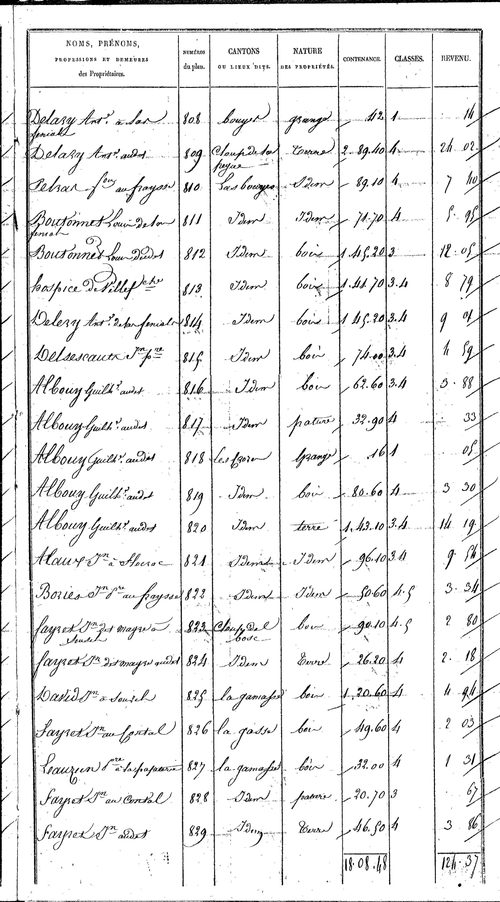 NOMS, PRÉNOMS, PROFESSIONS ET DEMEURES des Propriétaires. NUMÉROS du plan. CANTONS OU LIEUX DITS. NATURE DES PROPRIÉTÉS. CONTENANCE. CLASSES. REVENU.
Delazy Ant.e à Lar 808 bouyer grange 42 1 14
Delazy Ant.e audit 809 Terre 2 89.40 4 24 02
au fraysse 810 Las bouyges Idem 89.10 4 7 40
Boutonnet Louis de 811 Idem Idem 71.70 4 5 95
Boutonnet Louis dudit 812 Idem bois 1 45.20 3 12 05
hospice de Villef.che 813 Idem bois 1 41.70 3.4 8 79
Delezy Ant.e de 814 Idem bois 1 45.20 3.4 9 01
Delsescaux J.n p.re 815 Idem bois 74.00 3.4 4 59
Albouy Guilh.e audit 816 Idem bois 62.60 3.4 3 88
Albouy Guilh.e audit 817 Idem pature 32.90 4 33
Albouy Guilh.e audit 818 Grange 16 1 05
Albouy Guilh.e audit 819 Idem bois 80.60 4 3 30
Albouy Guilh.e audit 820 Idem terre 1.43.10 3.4 14 19
Alaux J.n à 821 Idem Idem 96.10 3.4 9 54
Bories J.n au fraysse 822 Idem Idem 50.60 4.5 3 34
fayret J.n dit mayre à 823 Claup del bosc bois 90.10 4.5 2 80
fayret J.n dit mayre audit 824 Idem Terre 26.20 4 2 18
David J.n à 825 la gamasse bois 1.20.60 4 4 94
Fayret J.n au Contal 826 la gasse bois 49.60 4 2 03
Leauzun 827 la gamasse bois 32.00 4 1 31
Fayret J.n au Contal 828 Idem pature 20.70 3 67
Fayret J.n audit 829 Idem Terre 46.50 4 3 86
18.08.48 124.37